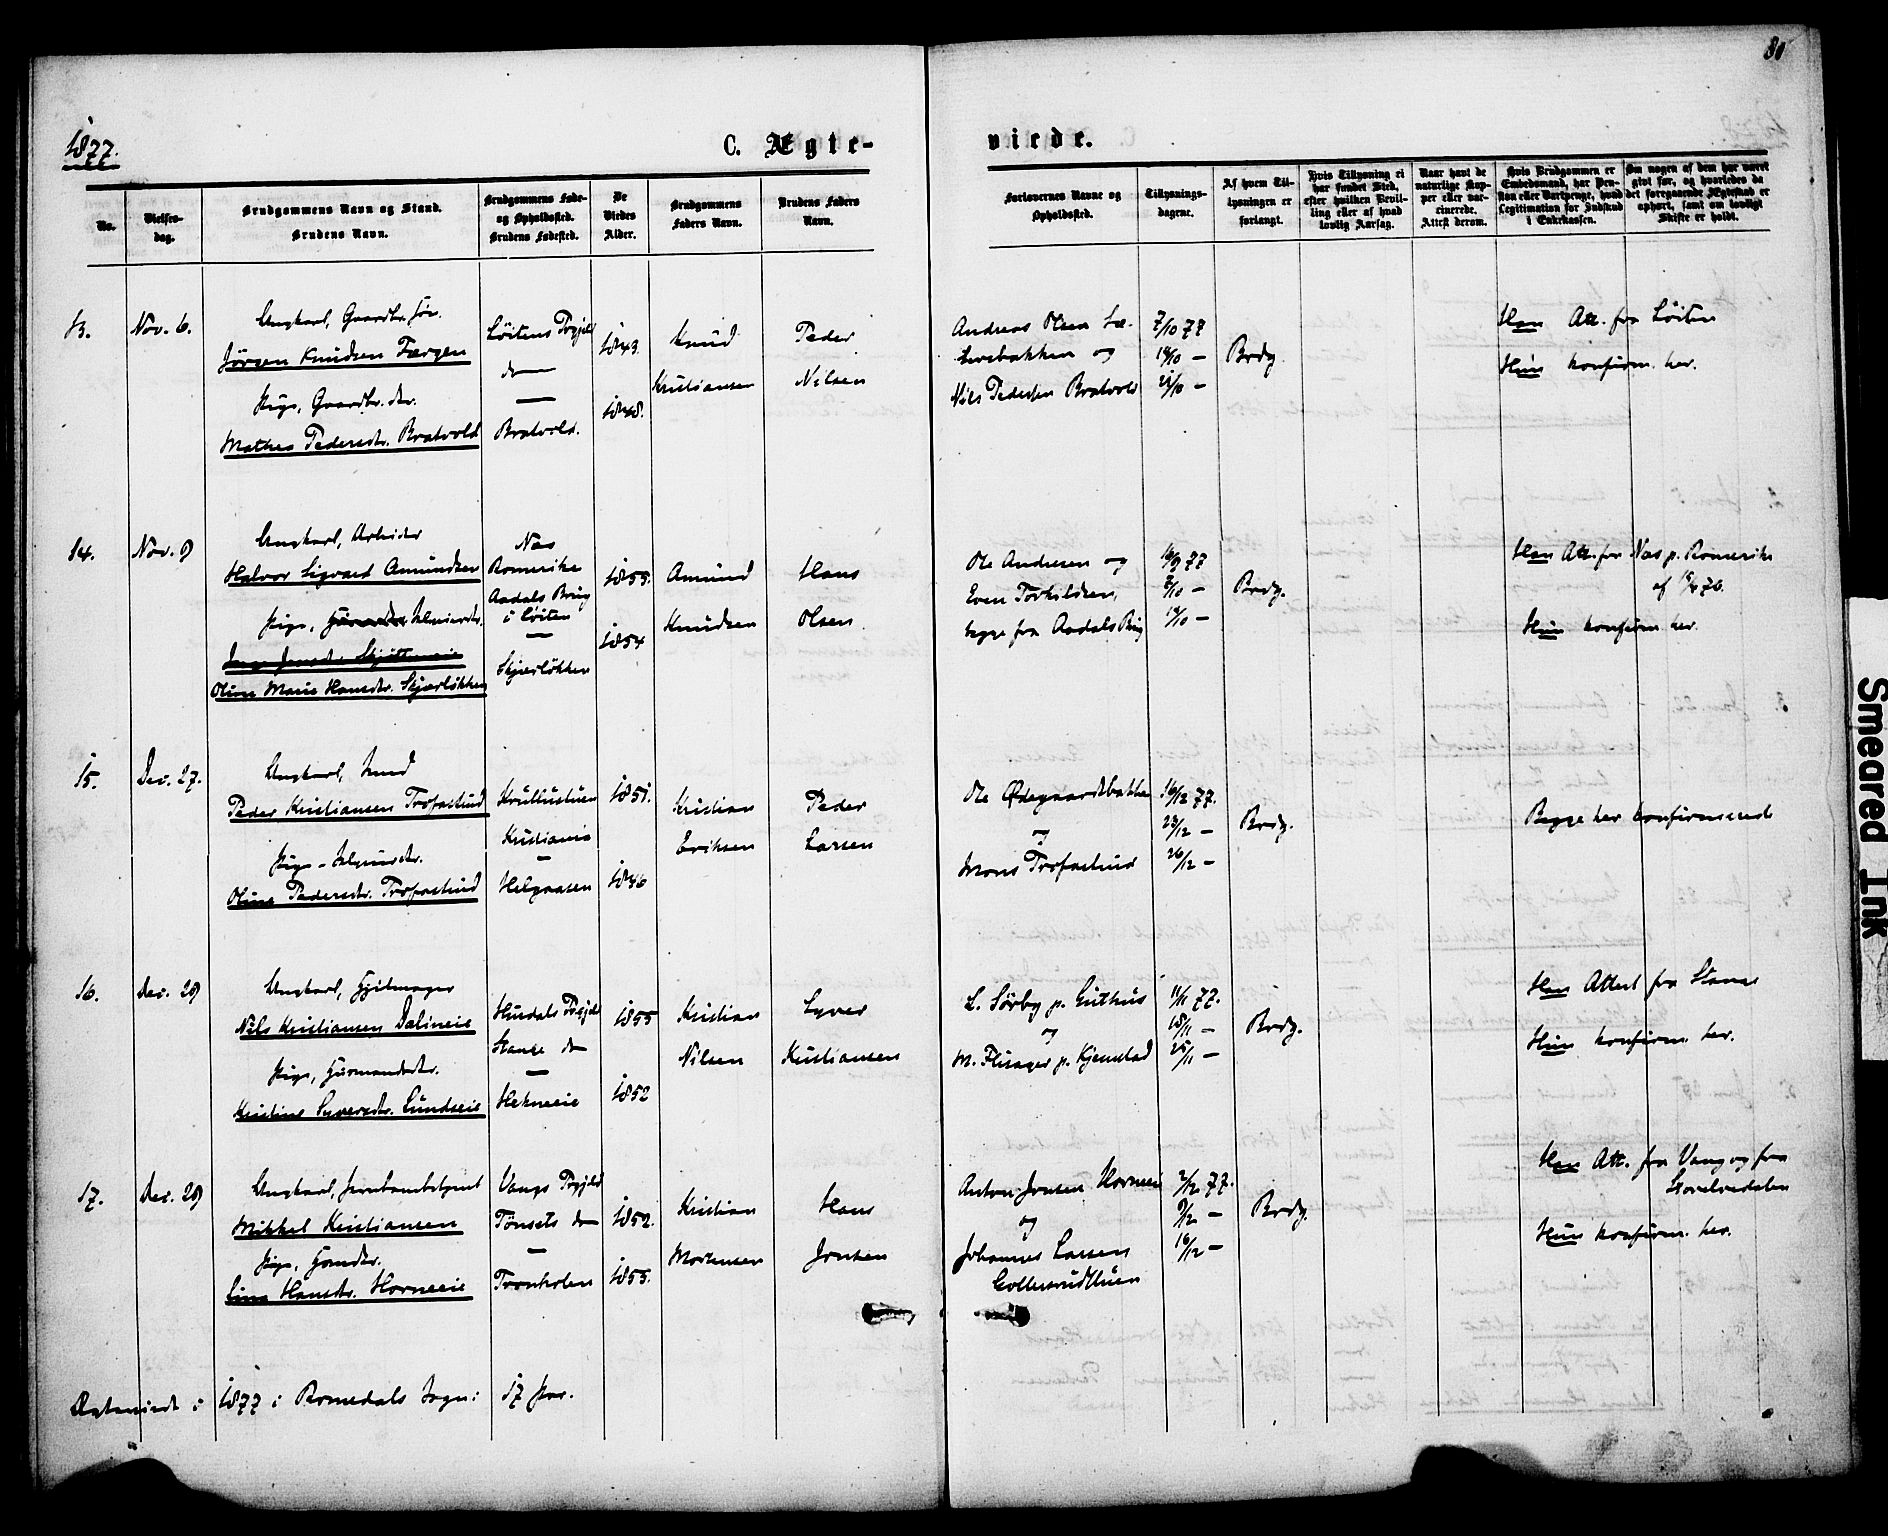 80
1877.
C. Ægte-
viede.
No.
Vielses-
dag.
Brudgommens Navn og Stand.
Brudens Navn.
Brudgommens Føde-
og Opholdssted.
Brudens Fødested.
De
Viedes
Alder.
Brudgommens
Faders Navn.
Brudens Faders
Navn.
Forlovernes Navne og
Opholdssted.
Tillysnings-
dagene.
Af hvem Til-
lysningen er
forlangt.
Hvis Tillysning ei
har fundet Sted,
efter hvilken Bevil-
ling eller af hvad
lovlig Aarsag.
Naar havt de
naturlige Kop-
per eller vac-
cinerede.
Attest derom.
Hvis Brudgommen er
Embedsmand, har Pen-
sion eller Vartpenge, hvad
Legitimation for Indskud
i Enkekassen.
Om nogen af dem har været
gift før, og hvorledes da
det foregaaende Ægteskab er
ophørt, samt om lovligt
Skifte er holdt.
13. Nov. 6.
Ungkarl, Gaardbr. Søn.
Jörgen Knudsen Færgen
Pige, Gaardbr. dtr.
Mathea Pedersdtr. Bratvold
Löitens Prgjeld
do
Bratvold.
1843.
1848.
Knud
Kristiansen
Peder
Nilsen
Andreas Olsen
og
Nils Pedersen Bratvold
7/10 77
14/10 —
21/10 —
Brdg.
Han Att. fra Löiten
Hun konfirm. her.
14. Nov. 9
Ungkarl, Arbeider
Halvor Sigvard Amundsen
Pige, Husmdtr Selveierdtr.
Olive Marie Hansdtr. Skjærlökken
Næs
Romerike
Aadals Brug
i Löiten
Skjærlökken
1855.
1854
Amund
Knudsen
Hans
Olsen
Ole Andersen og
Even Torkildsen,
begge fra Aadals Brug
7/10 —
14/10 —
Brdg.
Han Att. for Næs p. Romerike
Hun konfirm. her.
15. Dec. 27.
Ungkarl, Smed
Peder Kristiansen Trofastrud
Pige, Selveierdtr.
Oline Pedersdtr. Trofastrud
Krullustuen
Kristiania
Helgaasen
1851.
1846
Kristian
Eriksen
Peder
Larsen
Ole Ødegaardsbakke
og
Mons Trofastrud
16/12 77.
23/12 —
26/12 —
Brdg.
Begge her konfirmerede
16. Dec. 29
Ungkarl, Hjulmager
Nils Kristiansen Dalineie
Pige, Husmandsdtr.
Kristine Syversdtr. Lundseie
Hurdals Prgjeld
Stange do
Hekneeie
1855
1852
Kristian
Nilsen
Syver
Kristiansen
L. Sörby p. Guthus
og
M. Flisager p. Kjemstad
11/11 77.
18/11 —
25/11 —
Brdg.
Han Attest fra Stange
Hun konfirm. her.
17. Dec. 29
Ungkarl, Jernbanebetjent
Mikkel Kristiansen
Pige, Husmdtr.
Lina Hansdtr. Horneeie
Vangs Prgjeld
Tönsets do
Tronholen
1852.
1855.
Kristian
Mortensen
Hans
Jonsen
Anton Jonsen Horneeie
og
Johannes Larsen
Gollerudstuen
2/12 77.
9/12 —
16/12 —
Brdg.
Han Att. fra Vang og fra
Storelvedalen
Hun konfirm. her.
Ægteviede i 1877 i Romedals Sogn: 17 Par.
Smeared Ink